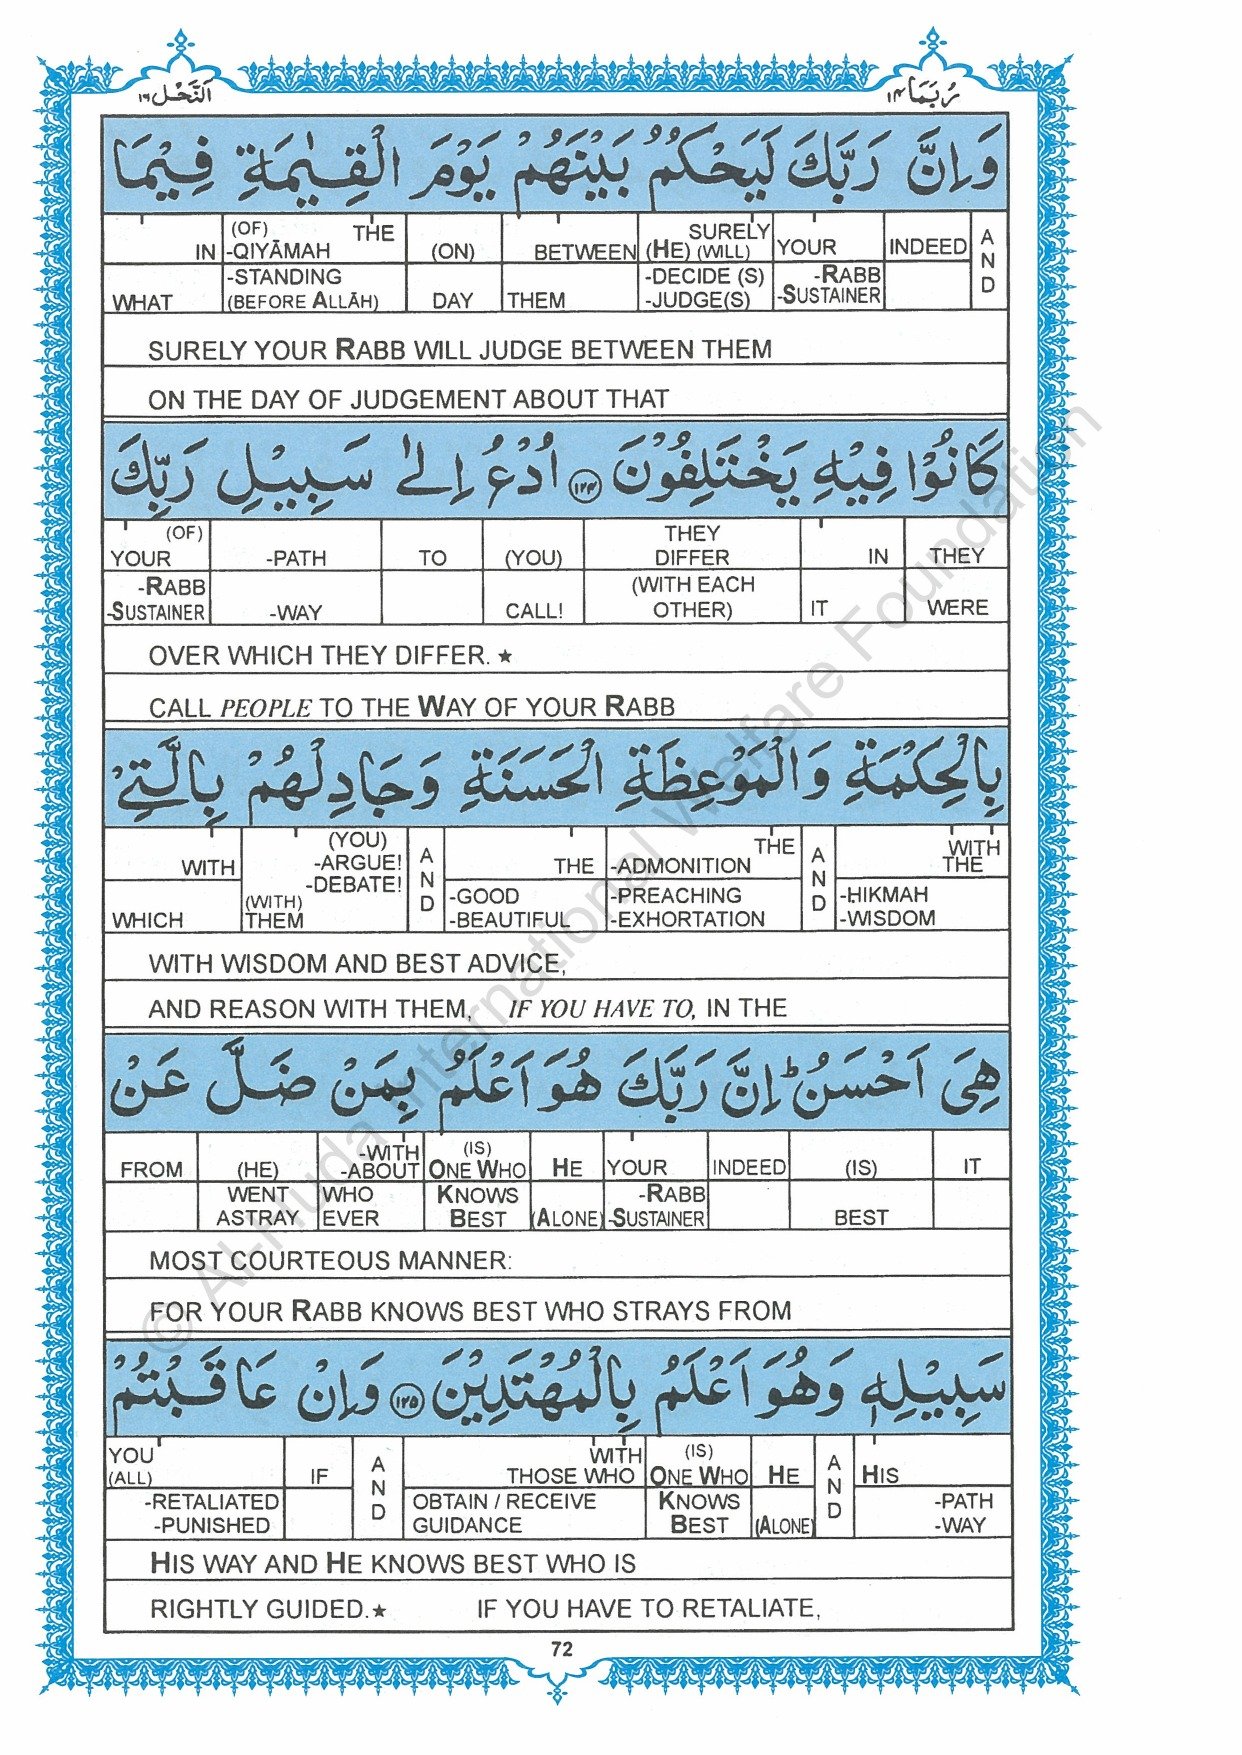 رُبَمَا ١٤
اَلنَّحْل ١٦
وَاِنَّ رَبَّكَ لَيَحْكُمُ بَيْنَهُمْ يَوْمَ الْقِيٰمَةِ فِيْمَا
AND INDEED YOUR SURELY (HE) (WILL) BETWEEN (ON) (OF) THE -QIYĀMAH IN
-RABB -SUSTAINER -DECIDE (S) -JUDGE(S) THEM DAY -STANDING (BEFORE ALLĀH) WHAT
SURELY YOUR RABB WILL JUDGE BETWEEN THEM
ON THE DAY OF JUDGEMENT ABOUT THAT
كَانُوْا فِيْهِ يَخْتَلِفُوْنَ ١٢٤ اُدْعُ اِلٰى سَبِيْلِ رَبِّكَ
THEY IN THEY DIFFER (YOU) TO -PATH (OF) YOUR
WERE IT (WITH EACH OTHER) CALL! -WAY -RABB -SUSTAINER
OVER WHICH THEY DIFFER. ★
CALL PEOPLE TO THE WAY OF YOUR RABB
بِالْحِكْمَةِ وَالْمَوْعِظَةِ الْحَسَنَةِ وَجَادِلْهُمْ بِالَّتِيْ
WITH THE AND THE -ADMONITION THE AND (YOU) -ARGUE! -DEBATE! WITH
-HIKMAH -WISDOM -PREACHING -EXHORTATION -GOOD -BEAUTIFUL (WITH) THEM WHICH
WITH WISDOM AND BEST ADVICE,
AND REASON WITH THEM, IF YOU HAVE TO, IN THE
هِيَ اَحْسَنُ ؕ اِنَّ رَبَّكَ هُوَ اَعْلَمُ بِمَنْ ضَلَّ عَنْ
IT (IS) INDEED YOUR HE (IS) ONE WHO -WITH -ABOUT (HE) FROM
BEST -RABB -SUSTAINER (ALONE) KNOWS BEST WHO EVER WENT ASTRAY
MOST COURTEOUS MANNER:
FOR YOUR RABB KNOWS BEST WHO STRAYS FROM
سَبِيْلِهٖ وَهُوَ اَعْلَمُ بِالْمُهْتَدِيْنَ ١٢٥ وَاِنْ عَاقَبْتُمْ
HIS AND HE (IS) ONE WHO WITH THOSE WHO AND IF YOU (ALL)
-PATH -WAY (ALONE) KNOWS BEST OBTAIN / RECEIVE GUIDANCE -RETALIATED -PUNISHED
HIS WAY AND HE KNOWS BEST WHO IS
RIGHTLY GUIDED.★ IF YOU HAVE TO RETALIATE,
72
© Al-Huda International Welfare Foundation